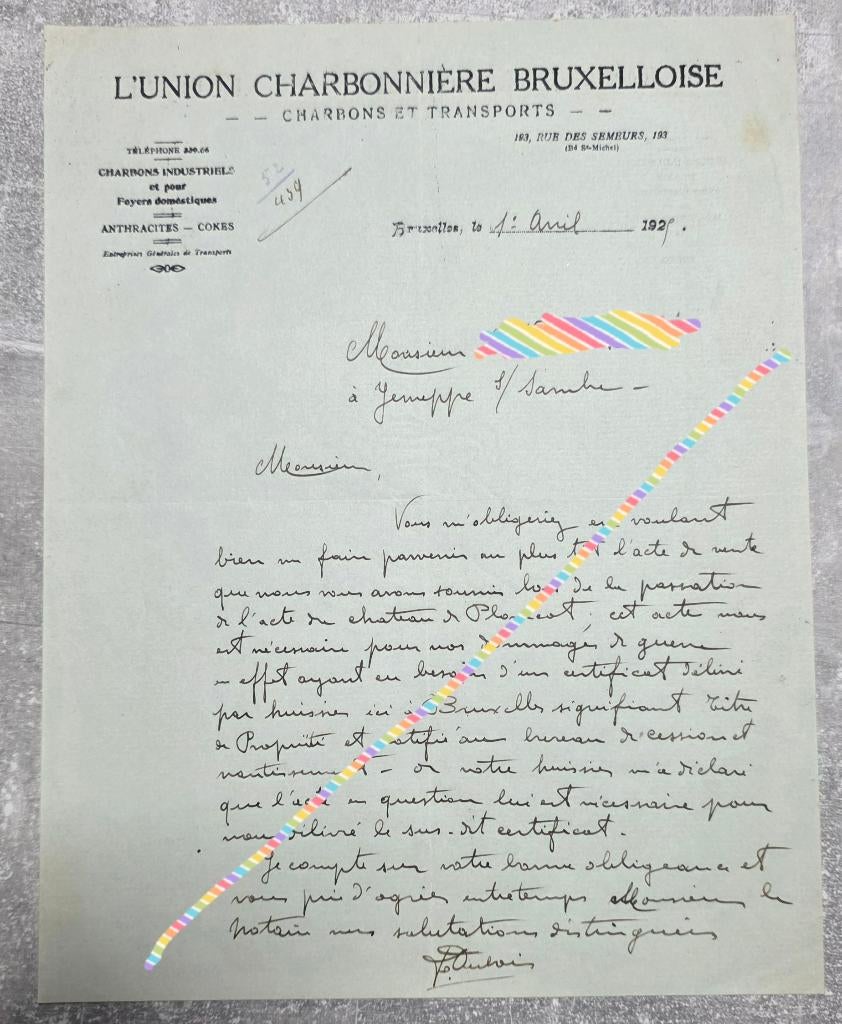 L'UNION CHARBONNIÈRE BRUXELLOISE
— — CHARBONS ET TRANSPORTS — —
193, RUE DES SEMEURS, 193
(Bd St-Michel)
TÉLÉPHONE 330.66
CHARBONS INDUSTRIELS
et pour
Foyers domestiques
ANTHRACITES — COKES
Entreprises Générales de Transports
52
459
Bruxelles, le 1: Avril 192
Monsieur
à Jemeppe s/ Sambre —
Monsieur,
Vous m'obligeriez en voulant
bien me faire parvenir au plus tôt l'acte de vente
que nous vous avons soumis lors de la passation
de l'acte du chateau de ; cet acte nous
est nécessaire pour nos dommages de guerre
en effet ayant eu besoin d'un certificat délivré
par huissier ici à Bruxelles signifiant Titre
de Propriété et notifié au bureau de cession et
nantissement — or notre huissier m'a déclaré
que l'acte en question lui est nécessaire pour
nous délivré le sus-dit certificat.
Je compte sur votre bonne obligeance et
vous prie d'agréer entretemps Monsieur le
Notaire mes salutations distinguées